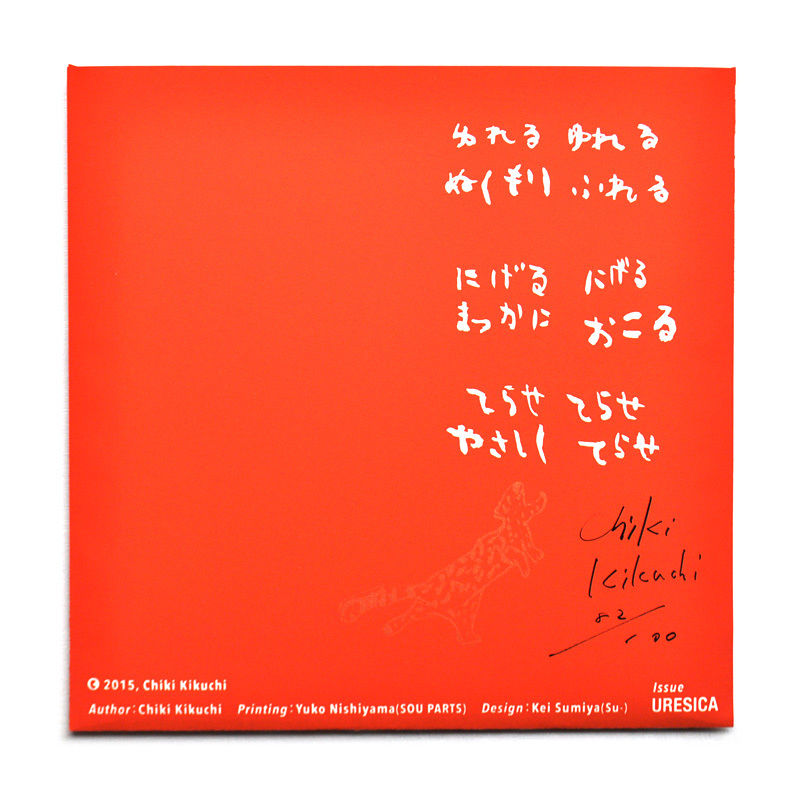 ゆれる ゆれる
ぬくもり ふれる
にげる にげる
まっかに おこる
てらせ てらせ
やさしく てらせ
Chiki
Kikuchi
82/100
© 2015, Chiki Kikuchi
Author : Chiki Kikuchi Printing : Yuko Nishiyama(SOU PARTS) Design : Kei Sumiya(Su-)
Issue
URESICA